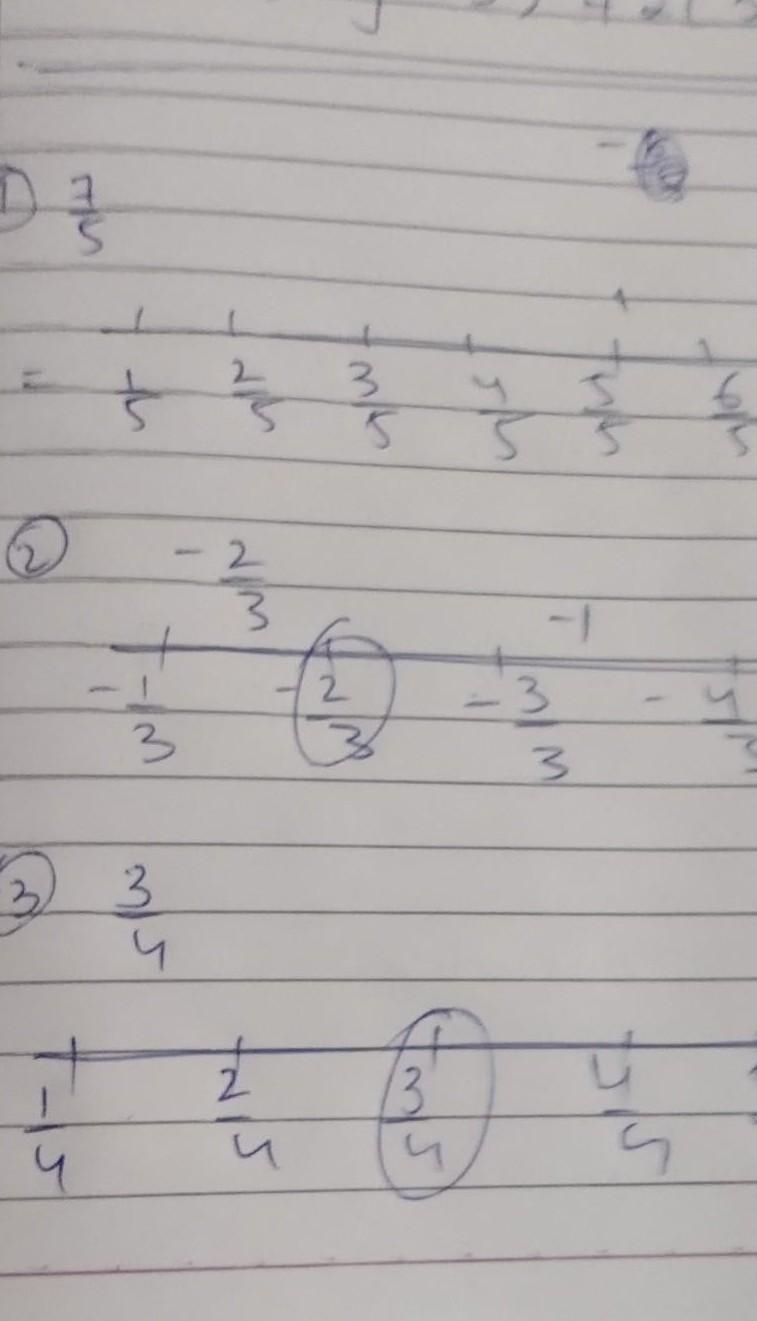 1) 7/5
= 1/5 2/5 3/5 4/5 5/5 6/5
2 -2/3
-1
-1/3 -2/3 -3/3 -4/3
3 3/4
1/4 2/4 3/4 4/4